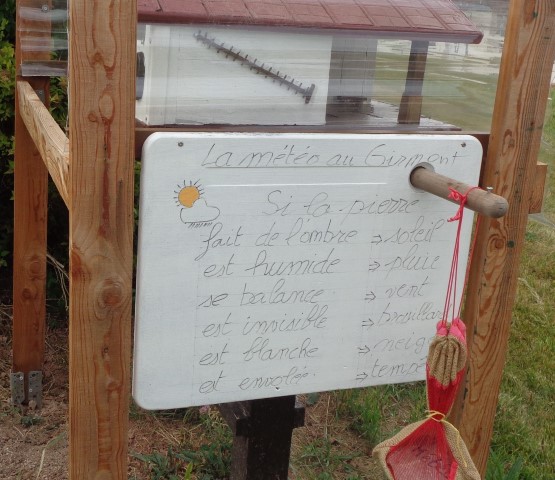 La météo au Girmont
Si la pierre
fait de l'ombre ⇒ soleil
est humide ⇒ pluie
se balance ⇒ vent
est invisible ⇒ brouillar
est blanche ⇒ neig
est envolée ⇒